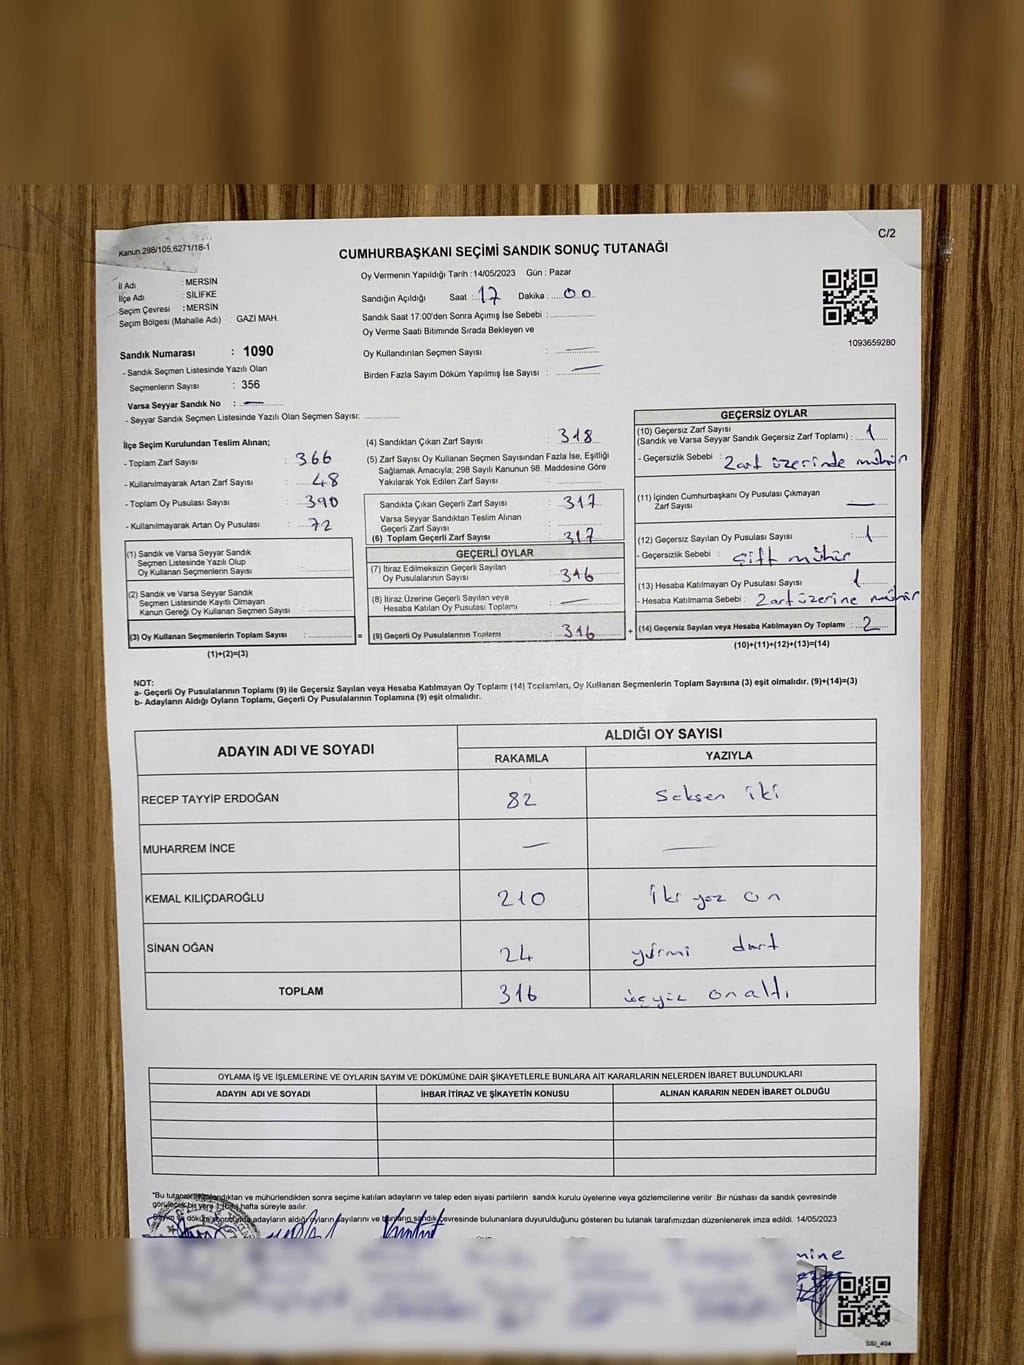 Kanun.298/105,6271/18-1
C/2
CUMHURBAŞKANI SEÇİMİ SANDIK SONUÇ TUTANAĞI
İl Adı : MERSİN
İlçe Adı : SİLİFKE
Seçim Çevresi : MERSİN
Seçim Bölgesi (Mahalle Adı) : GAZİ MAH.
Oy Vermenin Yapıldığı Tarih : 14/05/2023 Gün : Pazar
Sandığın Açıldığı Saat : 17 Dakika : 00
Sandık Saat 17:00'den Sonra Açımış İse Sebebi :
Oy Verme Saati Bitiminde Sırada Bekleyen ve
Oy Kullandırılan Seçmen Sayısı : —
Birden Fazla Sayım Döküm Yapılmış İse Sayısı : —
1093659280
Sandık Numarası : 1090
- Sandık Seçmen Listesinde Yazılı Olan
Seçmenlerin Sayısı : 356
Varsa Seyyar Sandık No : —
- Seyyar Sandık Seçmen Listesinde Yazılı Olan Seçmen Sayısı:
İlçe Seçim Kurulundan Teslim Alınan;
- Toplam Zarf Sayısı : 366
- Kullanılmayarak Artan Zarf Sayısı : 48
- Toplam Oy Pusulası Sayısı : 390
- Kullanılmayarak Artan Oy Pusulası : 72
(1) Sandık ve Varsa Seyyar Sandık
Seçmen Listesinde Yazılı Olup
Oy Kullanan Seçmenlerin Sayısı :
(2) Sandık ve Varsa Seyyar Sandık
Seçmen Listesinde Kayıtlı Olmayan
Kanun Gereği Oy Kullanan Seçmen Sayısı :
(3) Oy Kullanan Seçmenlerin Toplam Sayısı : =
(1)+(2)=(3)
(4) Sandıktan Çıkan Zarf Sayısı : 318
(5) Zarf Sayısı Oy Kullanan Seçmen Sayısından Fazla İse, Eşitliği
Sağlamak Amacıyla; 298 Sayılı Kanunun 98. Maddesine Göre
Yakılarak Yok Edilen Zarf Sayısı :
Sandıkta Çıkan Geçerli Zarf Sayısı : 317
Varsa Seyyar Sandıktan Teslim Alınan
Geçerli Zarf Sayısı :
(6) Toplam Geçerli Zarf Sayısı : 317
GEÇERLİ OYLAR
(7) İtiraz Edilmeksizin Geçerli Sayılan
Oy Pusulalarının Sayısı : 316
(8) İtiraz Üzerine Geçerli Sayılan veya
Hesaba Katılan Oy Pusulası Toplamı : —
(9) Geçerli Oy Pusulalarının Toplamı : 316 +
GEÇERSİZ OYLAR
(10) Geçersiz Zarf Sayısı
(Sandık ve Varsa Seyyar Sandık Geçersiz Zarf Toplamı) : 1
- Geçersizlik Sebebi : Zarf üzerinde mühür
(11) İçinden Cumhurbaşkanı Oy Pusulası Çıkmayan
Zarf Sayısı : —
(12) Geçersiz Sayılan Oy Pusulası Sayısı : 1
- Geçersizlik Sebebi : Çift mühür
(13) Hesaba Katılmayan Oy Pusulası Sayısı : 1
- Hesaba Katılmama Sebebi : Zarf üzerine mühür
(14) Geçersiz Sayılan veya Hesaba Katılmayan Oy Toplamı : 2
(10)+(11)+(12)+(13)=(14)
NOT:
a- Geçerli Oy Pusulalarının Toplamı (9) ile Geçersiz Sayılan veya Hesaba Katılmayan Oy Toplamı (14) Toplamları, Oy Kullanan Seçmenlerin Toplam Sayısına (3) eşit olmalıdır. (9)+(14)=(3)
b- Adayların Aldığı Oyların Toplamı, Geçerli Oy Pusulalarının Toplamına (9) eşit olmalıdır.
ADAYIN ADI VE SOYADI ALDIĞI OY SAYISI
RAKAMLA YAZIYLA
RECEP TAYYİP ERDOĞAN 82 Seksen iki
MUHARREM İNCE — —
KEMAL KILIÇDAROĞLU 210 İki yüz on
SİNAN OĞAN 24 yirmi dört
TOPLAM 316 üçyüz onaltı
OYLAMA İŞ VE İŞLEMLERİNE VE OYLARIN SAYIM VE DÖKÜMÜNE DAİR ŞİKAYETLERLE BUNLARA AİT KARARLARIN NELERDEN İBARET BULUNDUKLARI
ADAYIN ADI VE SOYADI İHBAR İTİRAZ VE ŞİKAYETİN KONUSU ALINAN KARARIN NEDEN İBARET OLDUĞU
*Bu tutanak ndıktan ve mühürlendikten sonra seçime katılan adayların ve talep eden siyasi partilerin sandık kurulu üyelerine veya gözlemcilerine verilir .Bir nüshası da sandık çevresinde
görülecek bir yere 1 hafta süreyle asılır.
döküm adayların aldığı oyların sayılarını ve bunların sandık çevresinde bulunanlara duyurulduğunu gösteren bu tutanak tarafımızdan düzenlenerek imza edildi. 14/05/2023
mine
SSI_404